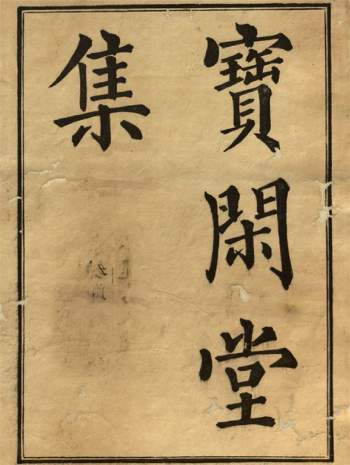 寶閑堂
集